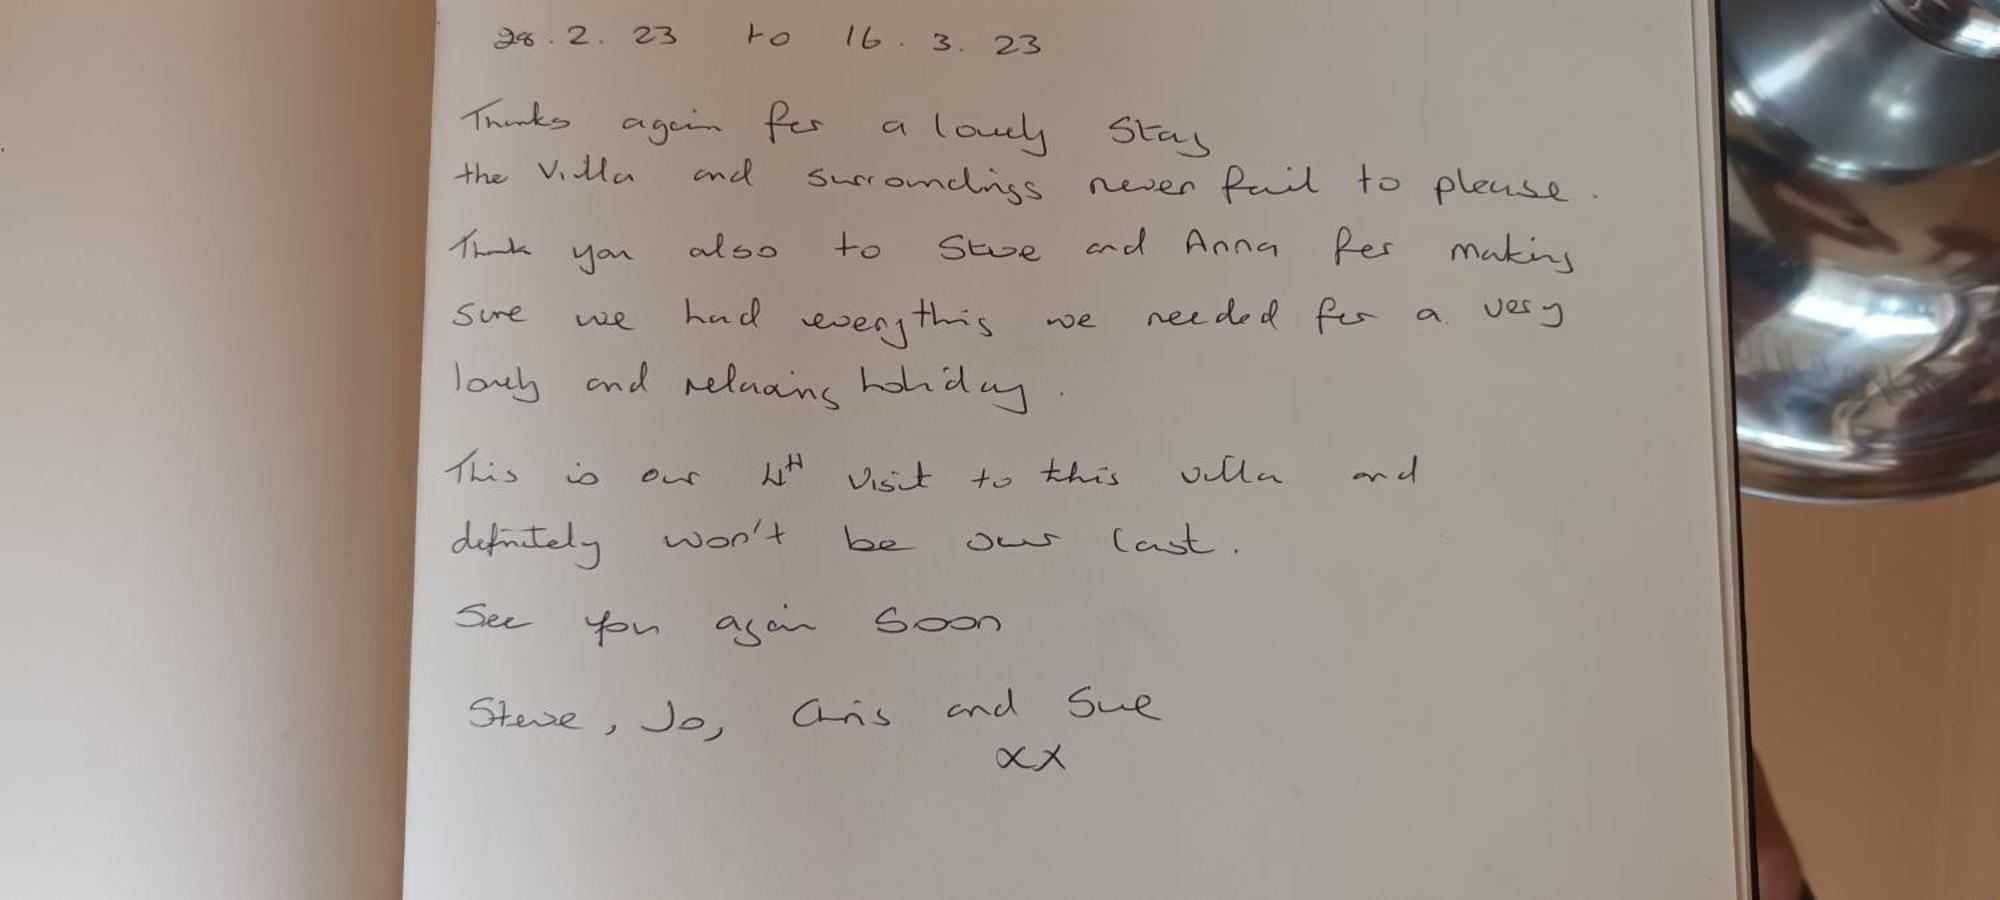 28.2.23 to 16.3.23
Thanks again for a lovely stay
the Villa and surroundings never fail to please.
Thank you also to Steve and Anna for making
sure we had everything we needed for a very
lovely and relaxing holiday.
This is our 4th visit to this villa and
definitely won't be our last.
See you again soon
Steve, Jo, Chris and Sue
xx